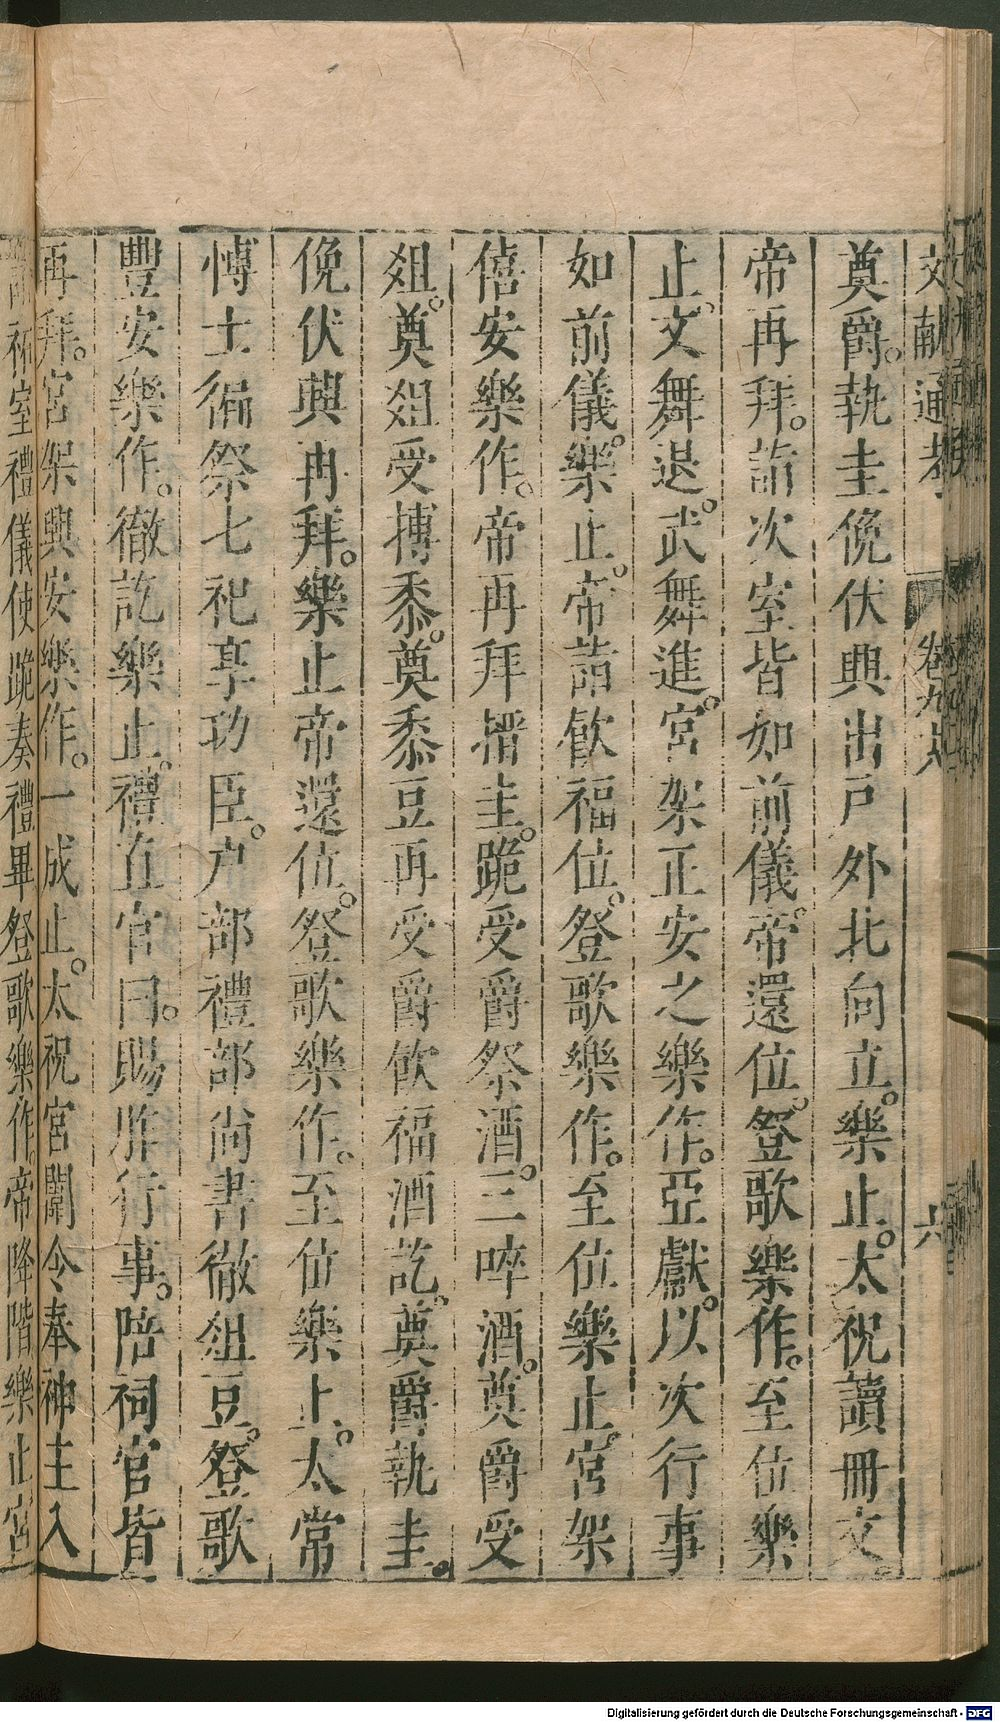 文獻通考 卷九六 六
奠爵。執圭俛伏興出戶外北向立。樂止。太祝讀冊文。
帝再拜。詣次室皆如前儀。帝還位。登歌樂作。至位樂
止。文舞退。武舞進。宮架正安之樂作。亞獻。以次行事
如前儀。樂止。帝詣飲福位。登歌樂作。至位樂止。宮架
僖安樂作。帝再拜搢圭。跪受爵祭酒。三啐酒。奠爵受
俎。奠俎受搏黍。奠黍豆再受爵飲福酒訖。奠爵執圭。
俛伏興再拜。樂止帝還位。登歌樂作。至位樂止。太常
博士徧祭七祀享功臣。户部禮部尚書徹俎豆。登歌
豐安樂作。徹訖樂止。禮直官曰。賜胙行事。陪祠官皆
再拜。宮架興安樂作。一成止。太祝宮闈令奉神主入
祏室禮儀使跪奏禮畢登歌樂作。帝降階樂止宮
Digitalisierung gefördert durch die Deutsche Forschungsgemeinschaft - DFG